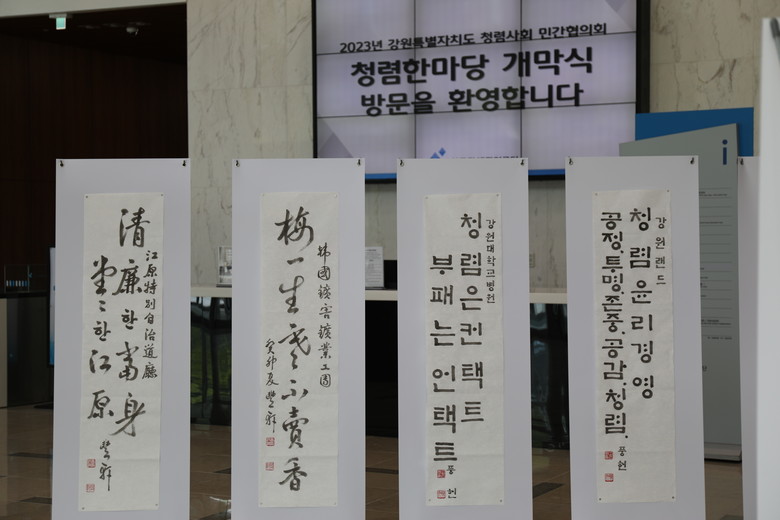 2023년 강원특별자치도 청렴사회 민간협의회
청렴한마당 개막식
방문을 환영합니다
i
江原特別自治道廳
清廉한 當身
堂〻한 江原
豊軒
韩國鑛害鑛業工團
梅一生寒不賣香
癸卯夏 豊軒
강원대학교병원
청렴은 컨택트
부패는 언택트
풍헌
강원랜드
청렴윤리경영
공정.투명.존중.공감.청렴.
풍헌